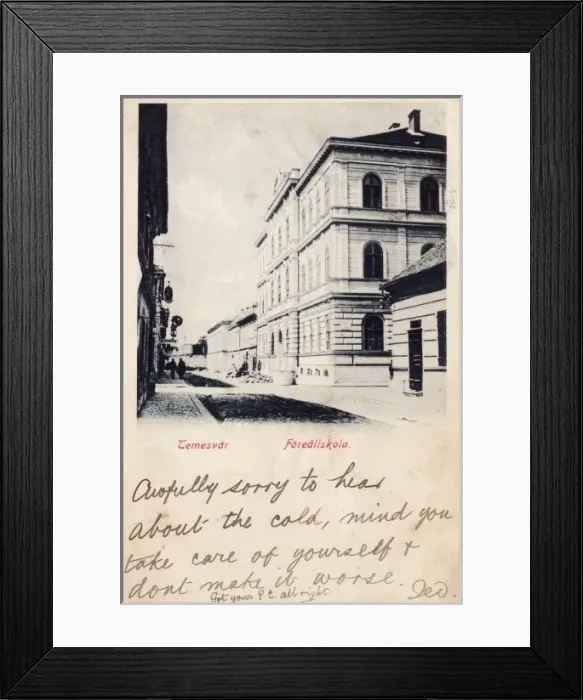 Temesvár Főreáliskola.
Awfully sorry to hear
about the cold, mind you
take care of yourself &
dont make it worse.
Got yours P.C. allright.